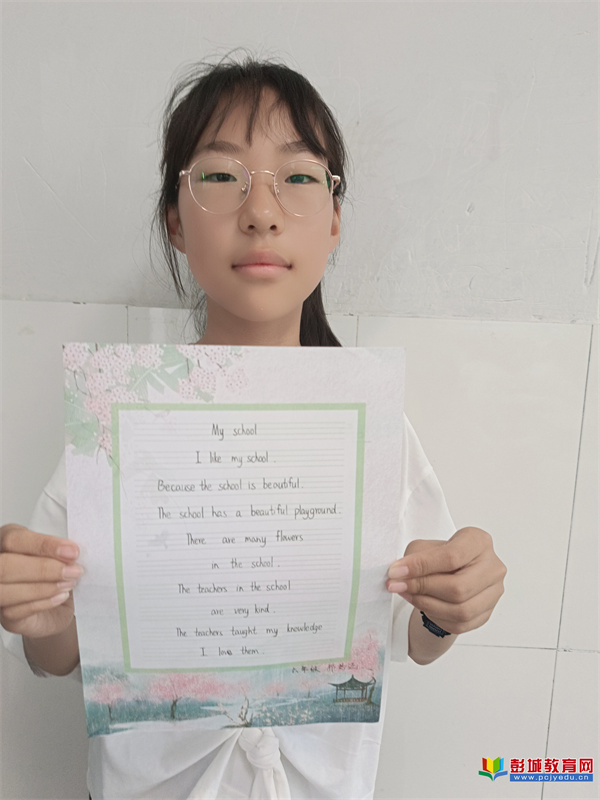 My school
I like my school.
Because the school is beautiful.
The school has a beautiful playground.
There are many flowers
in the school.
The teachers in the school
are very kind.
The teachers taught my knowledge
I love them.
彭城教育网
www.pcjyedu.cn